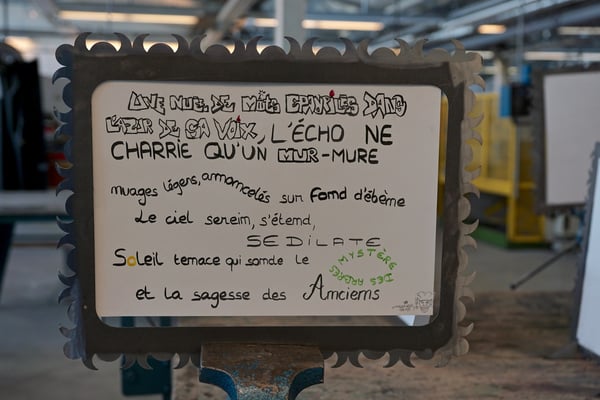 UNE NUÉE DE MÔTS ÉPINGLÉS DANS
L'AZUR DE SA VOIX, L'ÉCHO NE
CHARRIE QU'UN MUR-MURE
Nuages légers, amoncelés sur fond d'ébène
Le ciel serein, s'étend,
SE DILATE
Soleil tenace qui sonde le MYSTÈRE DES ARBRES
et la sagesse des Anciens